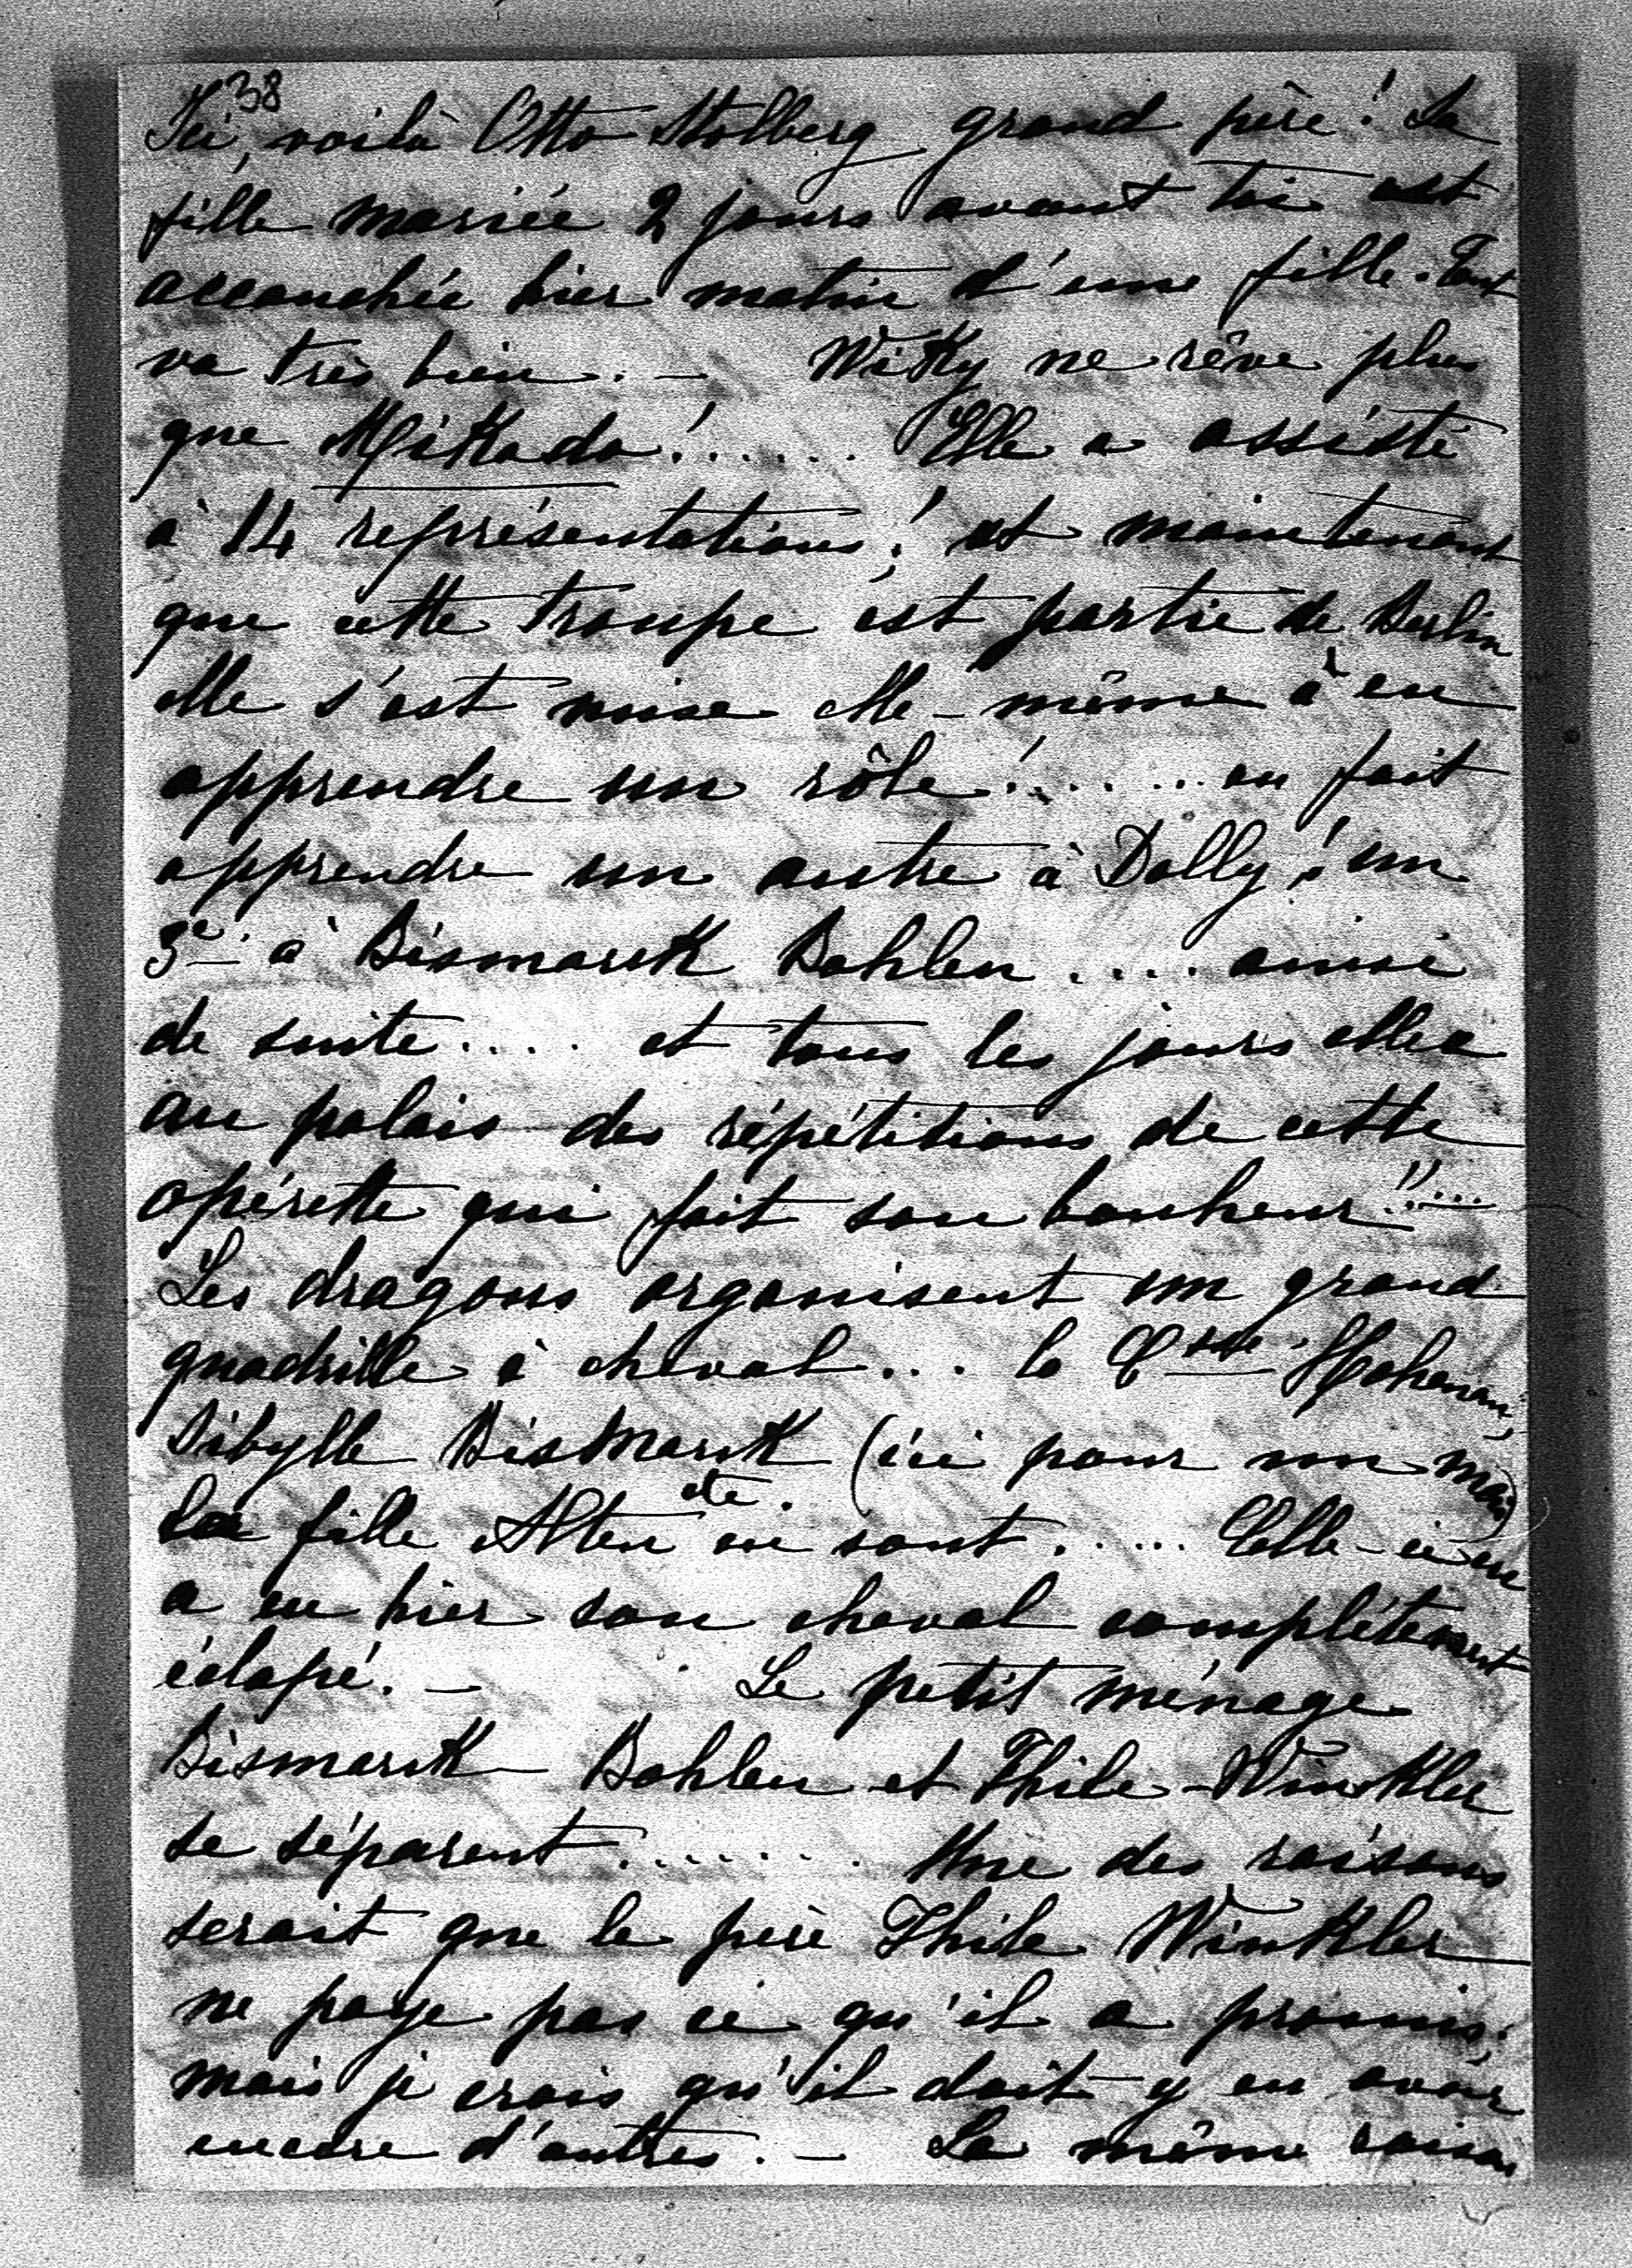 38
Ici, voilà Otto Stolberg grand père! Sa
fille mariée 2 jours avant toi est
accouchée hier matin d'une fille. Tout
va très bien. – Wikky ne rêve plus
que Mikado!...... Elle a assisté
à 14 représentations! et maintenant
que cette troupe est partie de Berlin
elle s'est mise elle-même à en
apprendre un rôle!...... en fait
apprendre un autre à Dolly! un
3e à Bismarck Bohlen.... ainsi
de suite.... et tous les jours elle a
au palais des répétitions de cette
opérette qui fait son bonheur!!...
Les dragons organisent un grand
quadrille à cheval... la Csse Hohenau,
Sibylle Bismarck (ici pour un mois)
la fille Alten etc. en sont..... Celle-ci en
a eu hier son cheval complètement
éclopé. – Le petit ménage
Bismarck-Bohlen et Thile-Winkler
se séparent....... Une des raisons
serait que le père Thile Winkler
ne paye pas ce qu'il a promis;
mais je crois qu'il doit y en avoir
encore d'autres. – La même raison